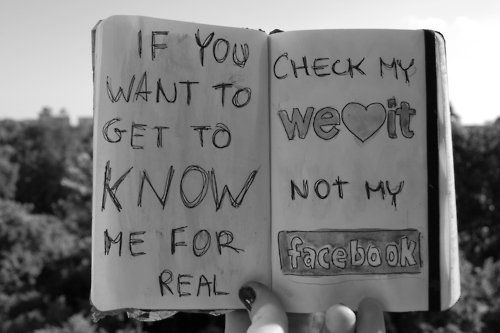 IF YOU
WANT TO
GET TO
KNOW
ME FOR
REAL
CHECK MY
we♥it
NOT MY
facebook